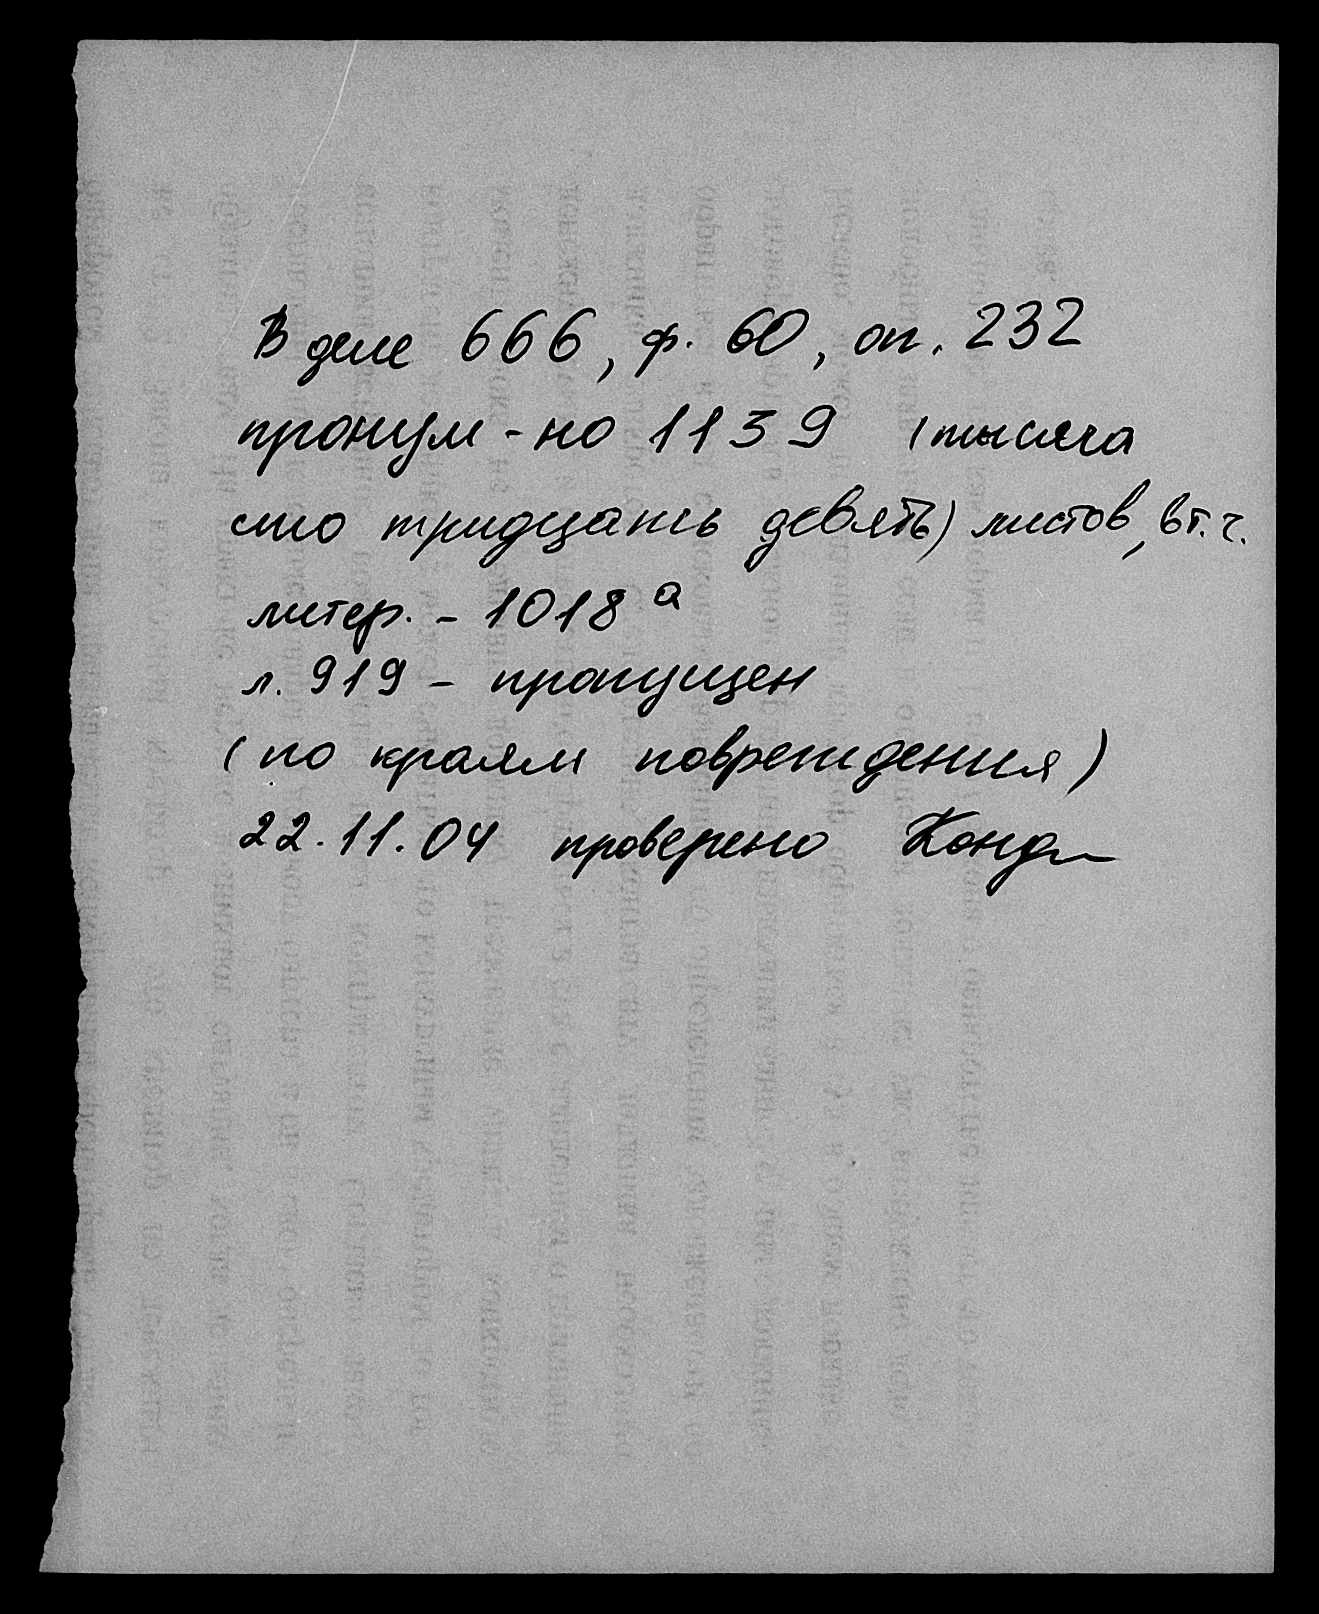 В деле 666, ф. 60, оп. 232
пронум-но 1139 (тысяча
сто тридцать девять) листов, в т.ч.
литер. - 1018ᵃ
л. 919 - пропущен
(по краям повреждения)
22.11.04 проверено